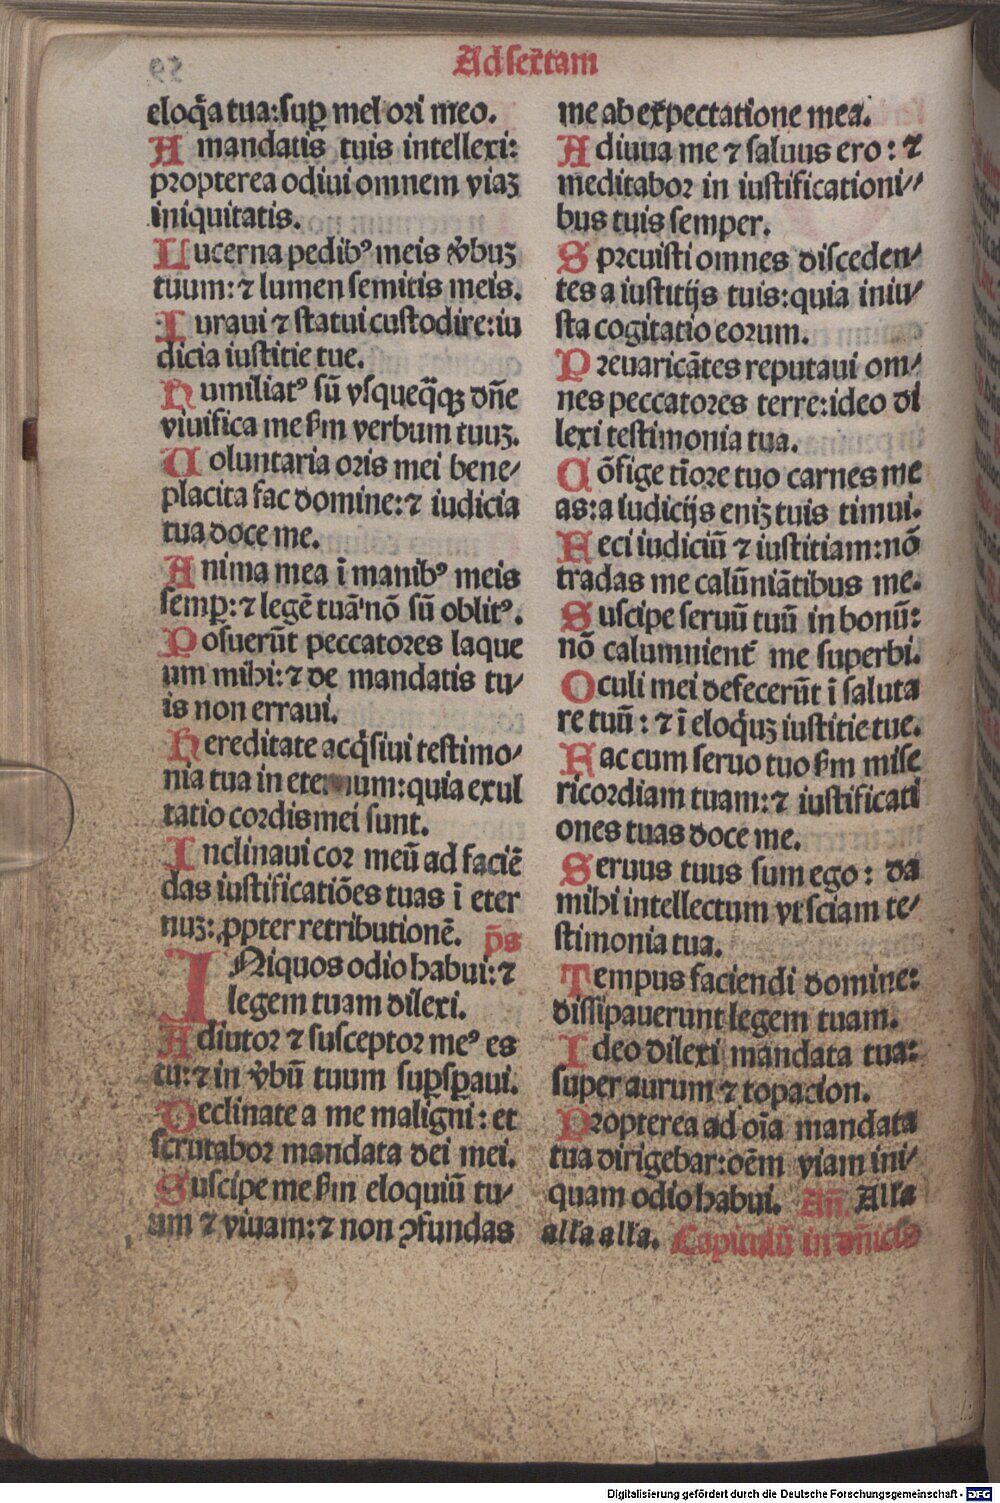 Ad sextam
59
eloq̄a tua: sup̱ mel ori meo.
A mandatis tuis intellexi:
propterea odiui omnem viaȝ
iniquitatis.
Lucerna pedibꝰ meis v̾buȝ
tuum: ⁊ lumen semitis meis.
Iuraui ⁊ statui custodire: iu
dicia iustitie tue.
Humiliatꝰ sū vsqueq̄qȝ dn̄e
viuifica me ẜm verbum tuuȝ.
Uoluntaria oris mei bene⸗
placita fac domine: ⁊ iudicia
tua doce me.
Anima mea ī manibꝰ meis
semp̱: ⁊ legē tuā nō sū oblitꝰ.
Posuerūt peccatores laque
um mihi: ⁊ de mandatis tu⸗
is non erraui.
Hereditate acq̄siui testimo⸗
nia tua in eternum: quia exul
tatio cordis mei sunt.
Inclinaui cor meū ad faciē
das iustificatiōes tuas ī eter
nuȝ: ꝓpter retributionē. p̄s
INiquos odio habui: ⁊
legem tuam dilexi.
Adiutor ⁊ susceptor meꝰ es
tu: ⁊ in v̾bū tuum sup̱sp̱aui.
Declinate a me maligni: et
scrutabor mandata dei mei.
Suscipe me ẜm eloquiū tu⸗
um ⁊ viuam: ⁊ non ꝯfundas
me ab expectatione mea.
Adiuua me ⁊ saluus ero: ⁊
meditabor in iustificationi⸗
bus tuis semper.
Sprcuisti omnes disceden⸗
tes a iustitijs tuis: quia iniu⸗
sta cogitatio eorum.
Preuaricātes reputaui om⸗
nes peccatores terre: ideo di
lexi testimonia tua.
Cōfige tīore tuo carnes me
as: a iudicijs eniȝ tuis timui.
Feci iudiciū ⁊ iustitiam: nō
tradas me calūniātibus me.
Suscipe seruū tuū in bonū:
nō calumnient᷑ me superbi.
Oculi mei defecerūt ī saluta
re tuū: ⁊ ī eloq̄uȝ iustitie tue.
Fac cum seruo tuo ẜm mise
ricordiam tuam: ⁊ iustificati
ones tuas doce me.
Seruus tuus sum ego: da
mihi intellectum vt sciam te⸗
stimonia tua.
Tempus faciendi domine:
dissipauerunt legem tuam.
Ideo dilexi mandata tua:
super aurum ⁊ topacion.
Propterea ad oīa mandata
tua dirigebar: oēm viam ini⸗
quam odio habui. An̄. Alła
alła alła. Capitulū in dn̄icis
Digitalisierung gefördert durch die Deutsche Forschungsgemeinschaft - DFG